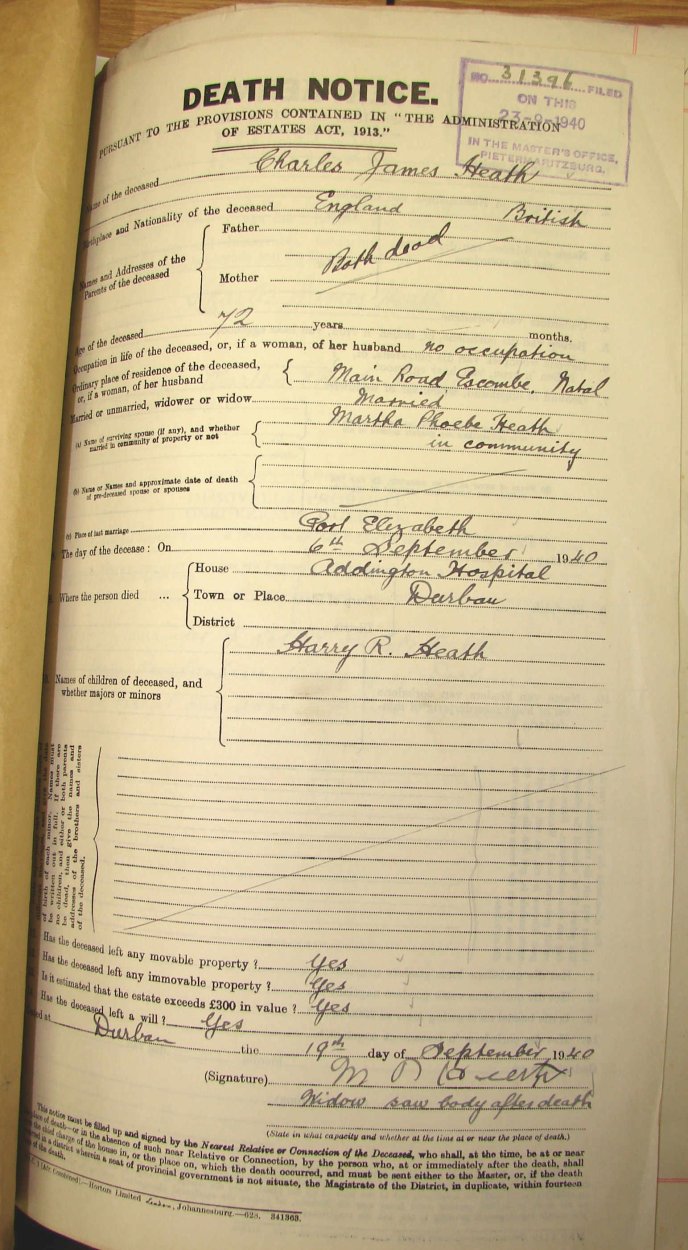 DEATH NOTICE.
NO. 31396 FILED
ON THIS
23-9-1940
IN THE MASTER'S OFFICE,
PIETERMARITZBURG.
PURSUANT TO THE PROVISIONS CONTAINED IN "THE ADMINISTRATION
OF ESTATES ACT, 1913."
Name of the deceased Charles James Heath
Birthplace and Nationality of the deceased England British
Names and Addresses of the
Parents of the deceased
Father
Both dead
Mother
Age of the deceased 72 years months.
Occupation in life of the deceased, or, if a woman, of her husband no occupation
Ordinary place of residence of the deceased,
or, if a woman, of her husband
Main Road Escombe, Natal
Married or unmarried, widower or widow Married
(a) Name of surviving spouse (if any), and whether
married in community of property or not
Martha Phoebe Heath
in community
(b) Name or Names and approximate date of death
of pre-deceased spouse or spouses
(c) Place of last marriage Port Elizabeth
The day of the decease: On 6th September 1940
Where the person died ...
House Addington Hospital
Town or Place Durban
District
Names of children of deceased, and
whether majors or minors
Harry R. Heath
of birth of each minor. Names must
be written out in full. If there are
no children, and either or both parents
be dead, then give the names and
addresses of the brothers and sisters
of the deceased.
Has the deceased left any movable property? Yes
Has the deceased left any immovable property? Yes
Is it estimated that the estate exceeds £300 in value? Yes
Has the deceased left a will? Yes
Dated at Durban the 19th day of September 1940
(Signature) M P Heath
Widow saw body after death
(State in what capacity and whether at the time at or near the place of death.)
This notice must be filled up and signed by the Nearest Relative or Connection of the Deceased, who shall, at the time, be at or near
place of death—or in the absence of such near Relative or Connection, by the person who, at or immediately after the death, shall
the chief charge of the house in, or the place on, which the death occurred, and must be sent either to the Master, or, if the death
occurred in a district wherein a seat of provincial government is not situate, the Magistrate of the District, in duplicate, within fourteen
of the death.
Horton Limited Johannesburg.—628. 341363.